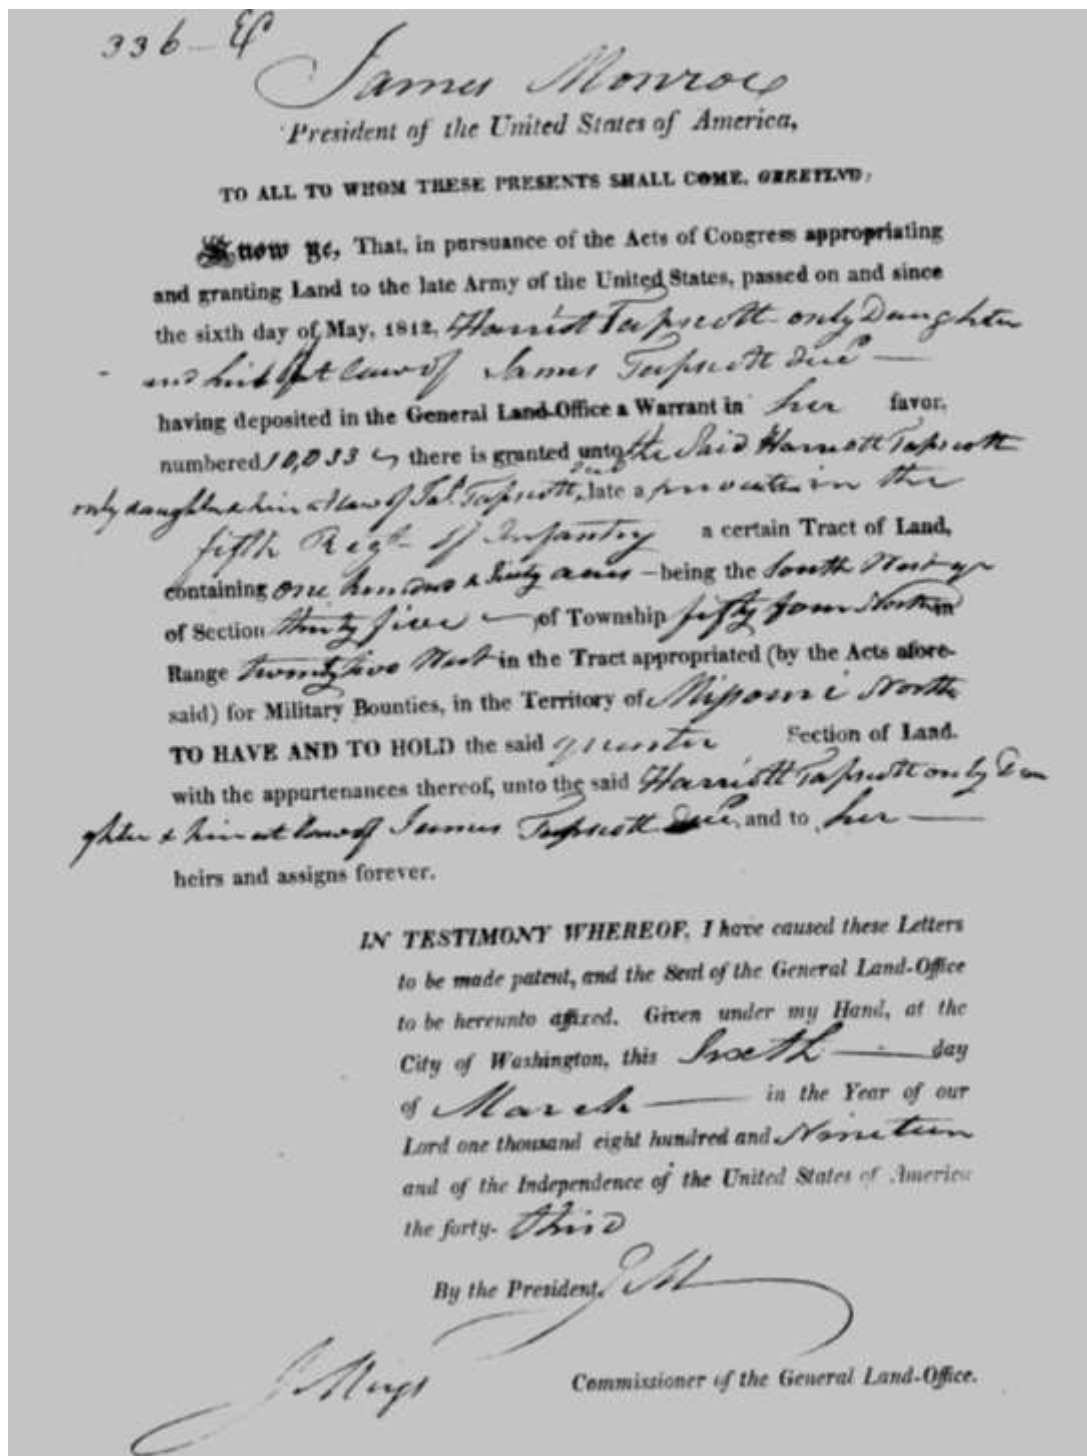 336 —
James Monroe
President of the United States of America,
TO ALL TO WHOM THESE PRESENTS SHALL COME, GREETING:
Know ye, That, in pursuance of the Acts of Congress appropriating
and granting Land to the late Army of the United States, passed on and since
the sixth day of May, 1812, Harriott Tapscott only Daughter
and heir at law of James Tapscott decd —
having deposited in the General Land-Office a Warrant in her favor,
numbered 10,033 there is granted unto the said Harriott Tapscott
only daughter & heir at law of Jas. Tapscott, decd late a private in the
fifth Regt of Infantry a certain Tract of Land,
containing one hundred & sixty acres — being the South West qr
of Section thirty five — of Township fifty four North in
Range twenty two West in the Tract appropriated (by the Acts afore-
said) for Military Bounties, in the Territory of Missouri North
TO HAVE AND TO HOLD the said quarter Section of Land.
with the appurtenances thereof, unto the said Harriott Tapscott only Dau
ghter & heir at law of James Tapscott decd, and to her —
heirs and assigns forever.
IN TESTIMONY WHEREOF, I have caused these Letters
to be made patent, and the Seal of the General Land-Office
to be hereunto affixed. Given under my Hand, at the
City of Washington, this Sixth — day
of March — in the Year of our
Lord one thousand eight hundred and Nineteen
and of the Independence of the United States of America
the forty- third
By the President, J M
J Meigs Commissioner of the General Land-Office.